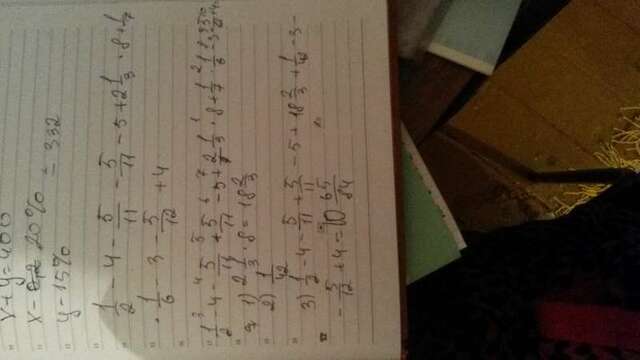 x+y=400
x - 20%
y - 15%
= 332
1/2 - 4 - 5/11 - 5/11 - 5 + 2 1/3 · 8 + 1/7
· 1/6 - 3 - 5/12 + 4
1/2 - 4 - 5/11 + 5/11 - 5 + 2 1/3 · 8 + 1/7 · 1/6 - 3
1) 2 1/3 · 8 = 18 2/3
2) 1/42
3) 1/2 - 4 - 5/11 + 5/11 - 5 + 18 2/3 + 1/42 - 3 -
- 5/12 + 4 = 10 65/84